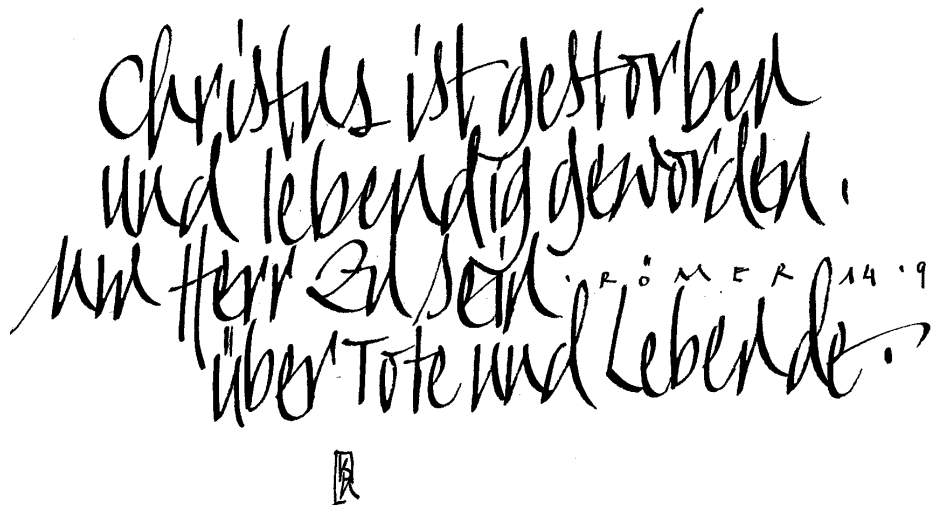 Christus ist gestorben
und lebendig geworden.
um Herr zu sein · RÖMER 14·9
über Tote und Lebende.